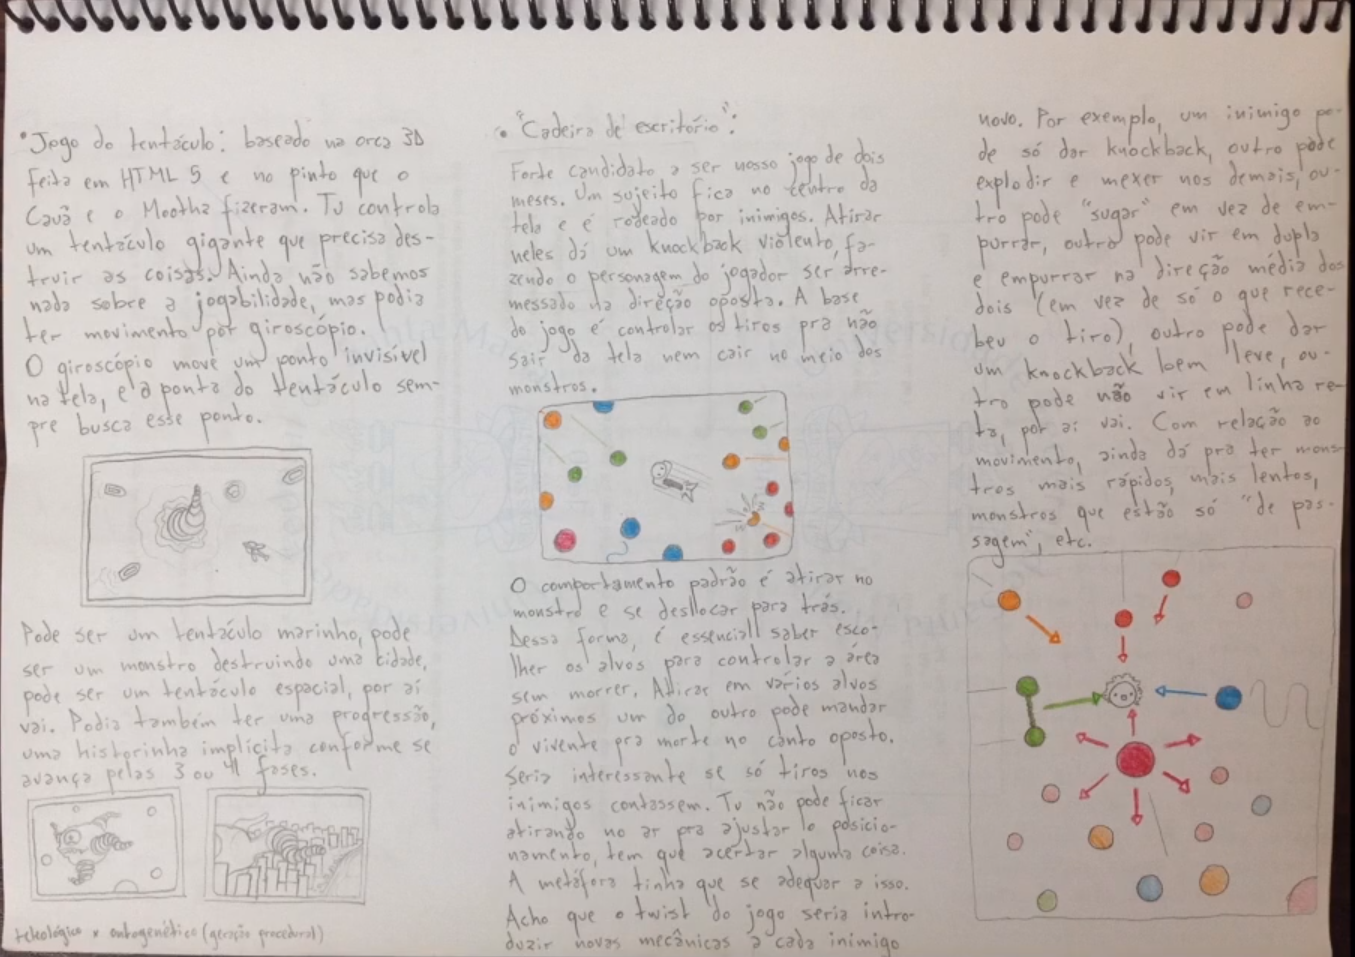 • Jogo do tentáculo: baseado na orca 3D
feita em HTML 5 e no pinto que o
Cauã e o Mootha fizeram. Tu controla
um tentáculo gigante que precisa des-
truir as coisas. Ainda não sabemos
nada sobre a jogabilidade, mas podia
ter movimento por giroscópio.
O giroscópio move um ponto invisível
na tela, e a ponta do tentáculo sem-
pre busca esse ponto.
Pode ser um tentáculo marinho, pode
ser um monstro destruindo uma cidade,
pode ser um tentáculo espacial, por aí
vai. Podia também ter uma progressão,
uma historinha implícita conforme se
avança pelas 3 ou 4 fases.
teleológico x ontogenético (geração procedural)
• "Cadeira de escritório":
Forte candidato a ser nosso jogo de dois
meses. Um sujeito fica no centro da
tela e é rodeado por inimigos. Atirar
neles dá um knockback violento, fa-
zendo o personagem do jogador ser arre-
messado na direção oposta. A base
do jogo é controlar os tiros pra não
sair da tela nem cair no meio dos
monstros.
O comportamento padrão é atirar no
monstro e se deslocar para trás.
Dessa forma, é essencial saber esco-
lher os alvos para controlar a área
sem morrer. Atirar em vários alvos
próximos um do outro pode mandar
o vivente pra morte no canto oposto.
Seria interessante se só tiros nos
inimigos contassem. Tu não pode ficar
atirando no ar pra ajustar o posicio-
namento, tem que acertar alguma coisa.
A metáfora tinha que se adequar a isso.
Acho que o twist do jogo seria intro-
duzir novas mecânicas a cada inimigo
novo. Por exemplo, um inimigo po-
de só dar knockback, outro pode
explodir e mexer nos demais, ou-
tro pode "sugar" em vez de em-
purrar, outro pode vir em dupla
e empurrar na direção média dos
dois (em vez de só o que rece-
beu o tiro), outro pode dar
um knockback bem leve, ou-
tro pode não vir em linha re-
ta, por aí vai. Com relação ao
movimento, ainda dá pra ter mons-
tros mais rápidos, mais lentos,
monstros que estão só "de pas-
sagem", etc.